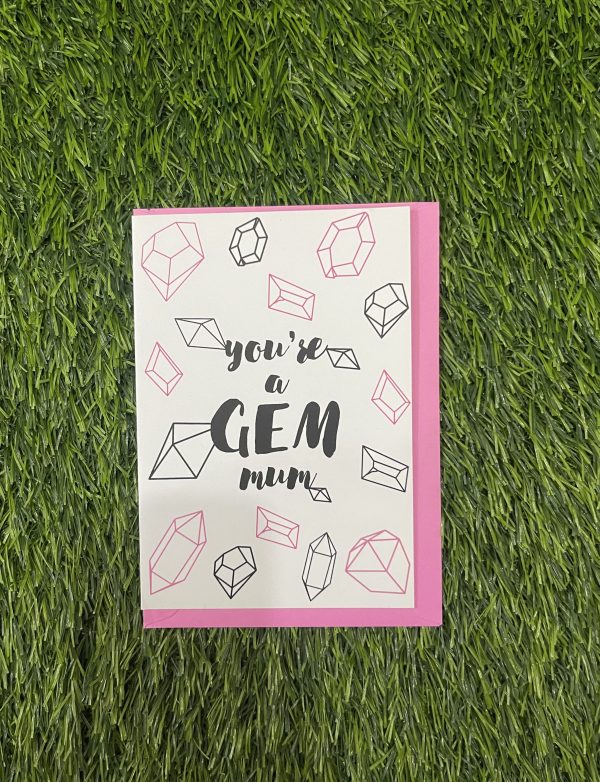 you're
a
GEM
mum